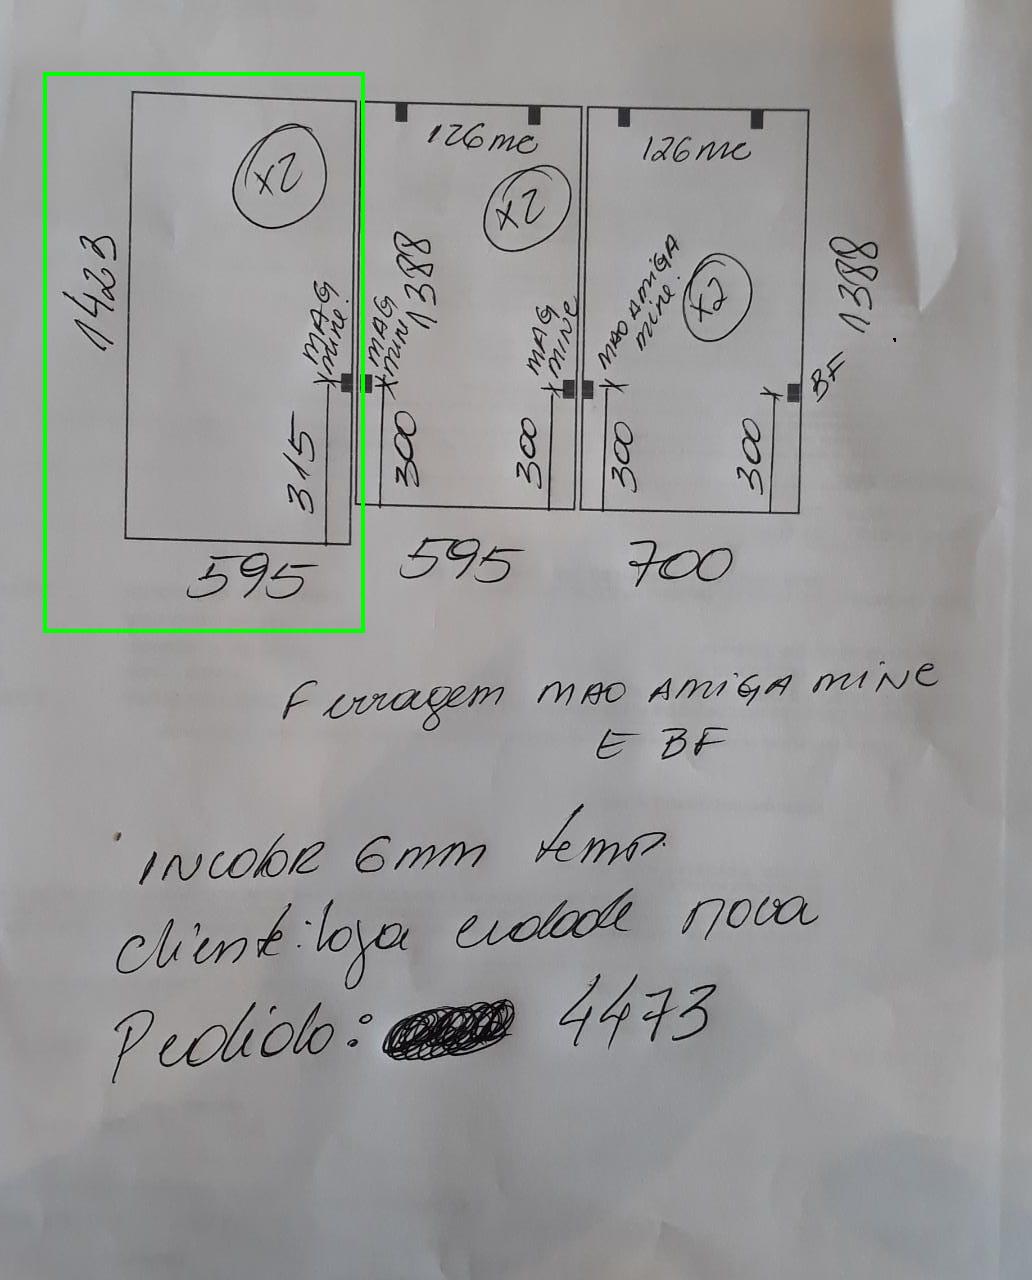 x2
126 mc
126 mc
x2
x2
1423
MAG mine.
MAG mini
1388
MAG MINE
MAO AMIGA mine.
1388
BF
315
300
300
300
300
595
595
700
Ferragem MAO AMIGA MINE
E BF
INCOLOR 6mm temp.
cliente: loja cidade nova
Pedido: 4473